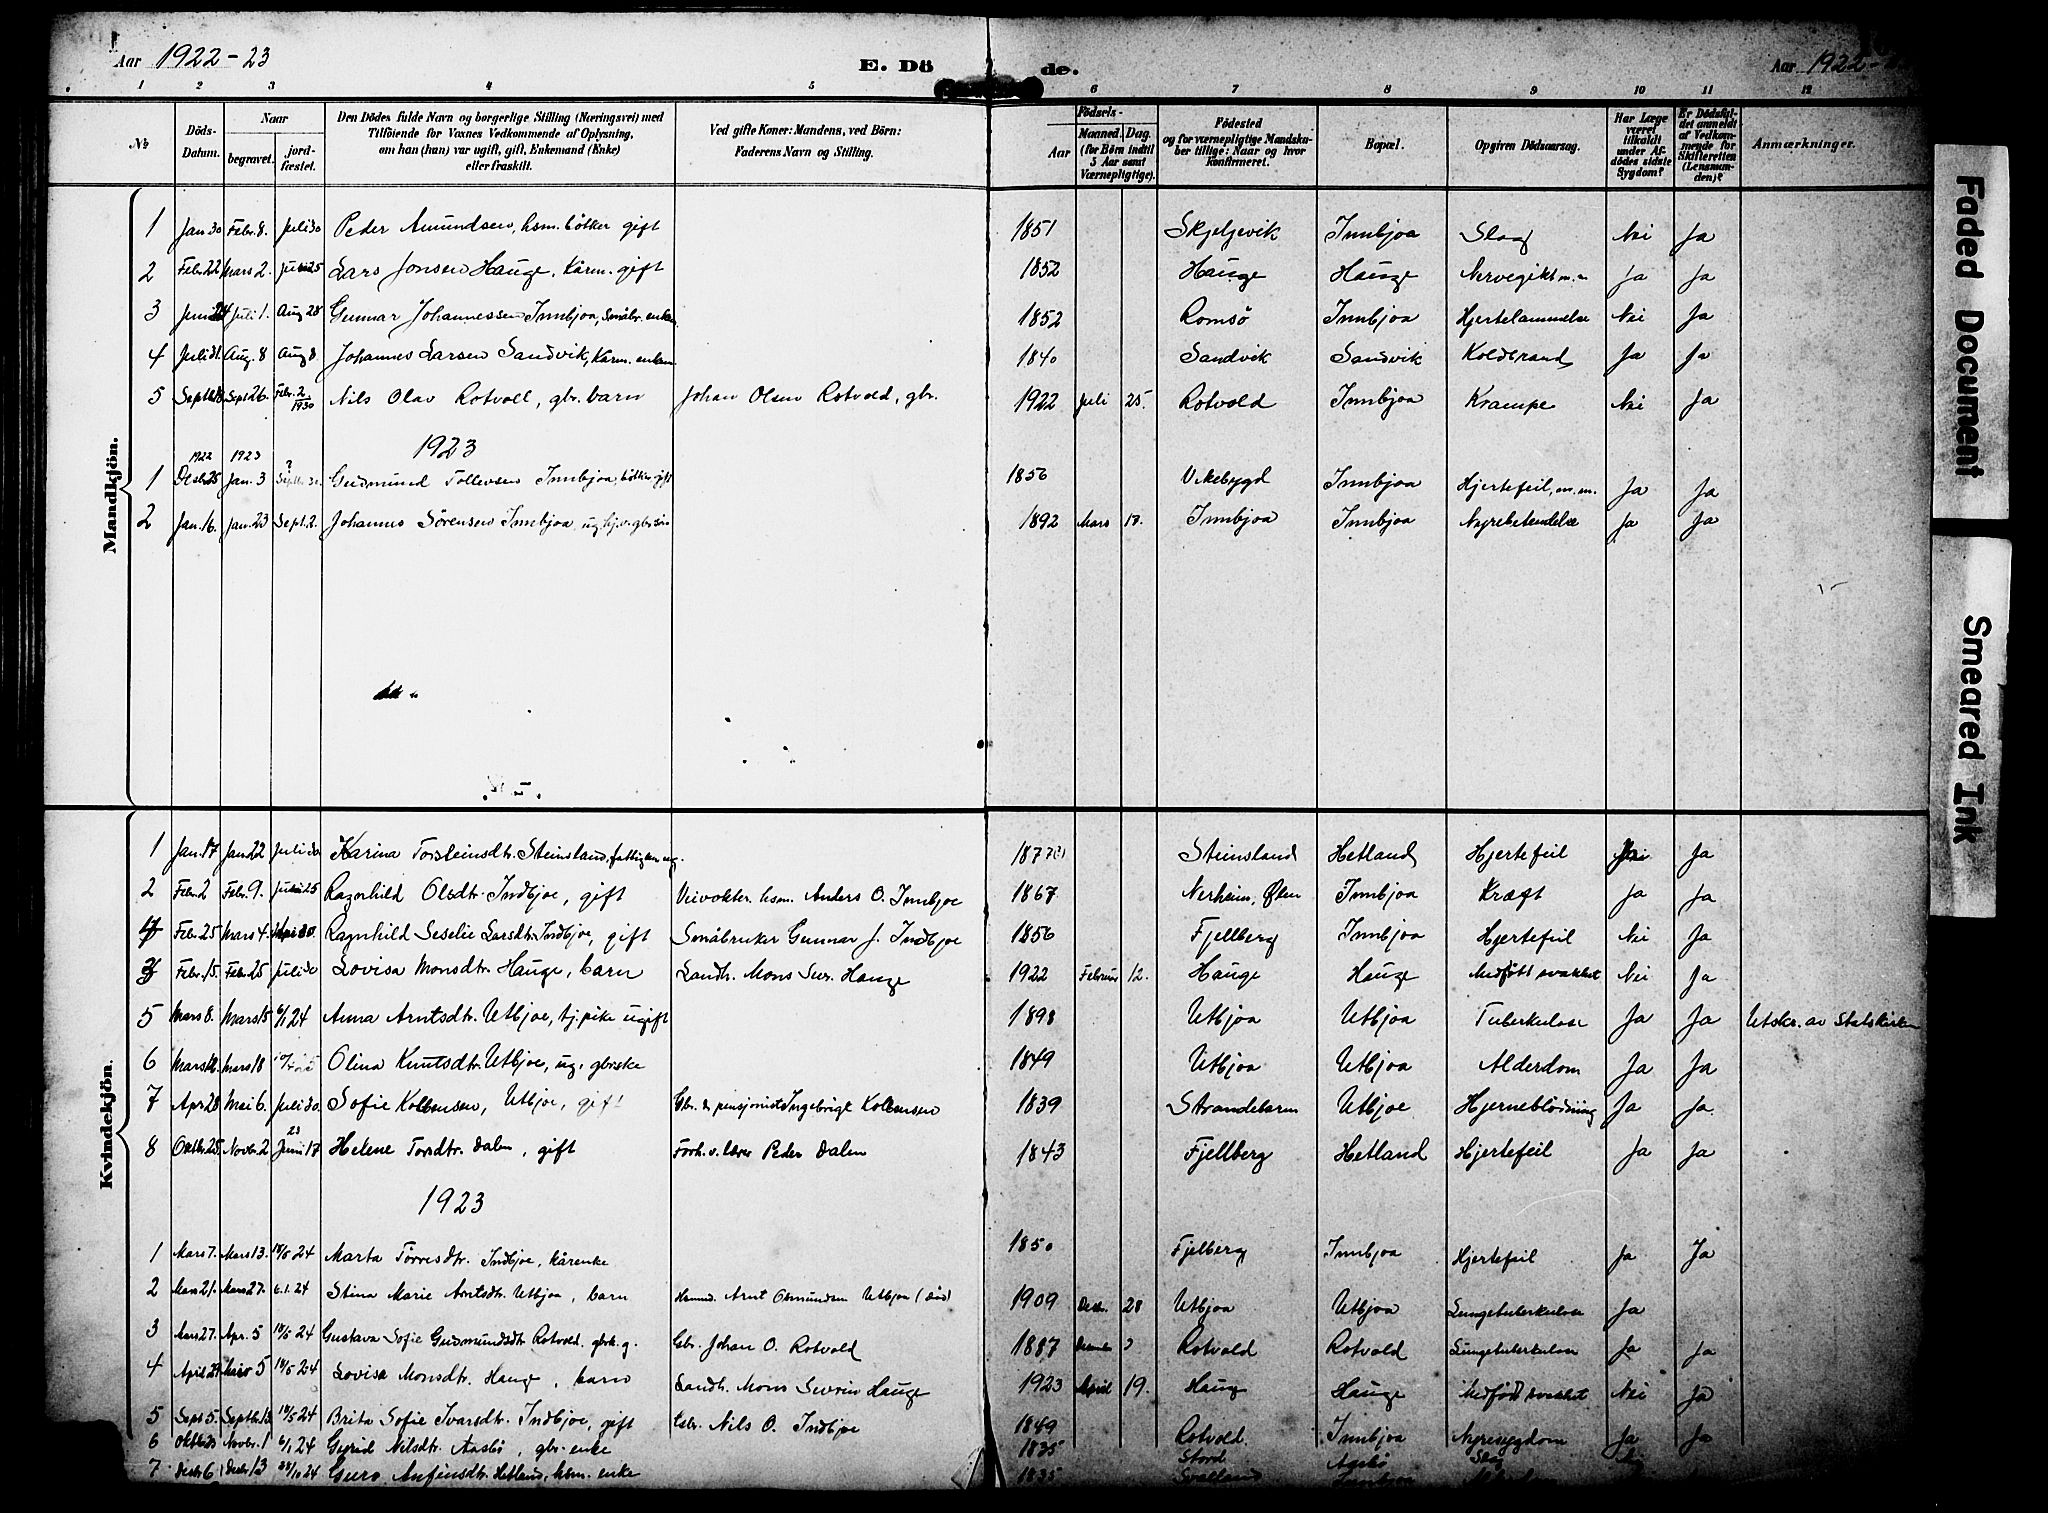 Aar 1922-23 E. Dö de. Aar 1922-
1 2 3 4 5 6 7 8 9 10 11 12
№ Döds-Datum. Naar begravet. jord-fæstet. Den Dödes fulde Navn og borgerlige Stilling (Næringsvei) med Tilföiende for Voxnes Vedkommende af Oplysning, om han (hun) var ugift, gift, Enkemand (Enke) eller fraskilt. Ved gifte Koner: Mandens, ved Börn: Faderens Navn og Stilling. Födsels- Aar Maaned. Dag. (for Börn indtil 5 Aar samt Værnepligtige). Födested og for værnepligtige Mandskaber tillige: Naar og hvor konfirmeret. Bopæl. Opgiven Dödsaarsag. Har Læge været tilkaldt under Afdödes sidste Sygdom? Er Dödsfaldet anmeldt af Vedkommende for Skifteretten (Lensmanden)? Anmærkninger.
Mandkjön.
1 Jan. 30 Febr. 8. Juli 30 Peder Amundsen, hsm. bötker gift 1851 Skjeljevik Innbjoa Slag Nei Ja
2 Febr. 22 Mars 2. Juni 25 Lars Jonsen Hauge, Kårm. gift 1852 Hauge Hauge Nervegikt m.m Ja Ja
3 Juni 24 Juli 1. Aug 28 Gunnar Johannessen Innbjoa, Småbr. enkem. 1852 Romsö Innbjoa Hjertelammelse Nei Ja
4 Juli 31. Aug. 8 Aug 8. Johannes Larsen Sandvik, Kårm. enkem 1840 Sandvik Sandvik Koldbrand Ja Ja
5 Septb. 18. Sept 26. Febr. 2 1930 Nils Olav Rotvoll, gbr. barn Johan Olsen Rotvold, gbr. 1922 Juli 25. Rotvold Innbjoa Krampe Nei Ja
1923
1922 1923 ?
1 Desbr. 25 Jan. 3 Septbr. 30. Gudmund Tollevsen Innbjoa, bötker gift 1856 Vikebygd Innbjoa Hjertefeil, m.m. Ja Ja
2 Jan. 16. Jan. 23 Sept. 2. Johannes Sörensen Innbjoa ug. hj.v. gbr. sön 1892 Mars 18. Innbjoa Innbjoa Nyrebetendelse Ja Ja
Kvindekjön.
1 Jan. 17 Jan 22 Juli 30 Karina Torsteinsdtr. Steinsland, fattigken ug. Steinsland Hetland Hjertefeil Ja
2 Febr. 2 Febr. 9. Juni 25 Ragnhild Olsdtr. Indbjoe, gift Veivokter. hsm. Anders O. Innbjoe 1867 Nerheim, Ølen Innbjoa Kræft Ja Ja
4 Febr. 25 Mars 4. Ragnhild Seselie Larsdtr. Indbjoe, gift Småbruker Gunnar J. Indbjoe 1856 Fjellberg Innbjoa Hjertefeil Nei Ja
3 Febr. 15. Febr. 25 Juli 30 Lovisa Monsdtr. Hauge, barn Landh. Mons Sev. Hauge 1922 Februar 12. Hauge Hauge Medfött svakhet Nei Ja
5 Mars 8. Mars 15 6/1 24 Anna Arntsdtr. Utbjoe, tj. pike ugift 1898 Utbjoa Utbjoa Tuberkulose Ja Ja Utskr. av Statskirken
6 Mars 12. Mars 18 Olina Knutsdtr. Utbjoe, ug. gbrske 1849 Utbjoa Utbjoa Alderdom Ja Ja
7 Apr 28 Mai 6. Juli 30. Sofie Kolbensen, Utbjoe, gift Gbr. & pensjonist Ingebrigt Kolbensen 1839 Strandebarm Utbjoe Hjerneblödning Ja Ja.
8 Oktbr. 25. Novbr. 2 23 Juni 17 Helene Tordtr. Dalen, gift Forh. v. lærer Peder Dalen 1843 Fjellberg Hetland Hjertefeil Ja Ja
1923
1 Mars 7. Mars 13. 18/5 24 Marta Torresdtr. Indbjoe, kårenke 1850 Fjelberg Innbjoa Hjertefeil Ja Ja
2 Mars 21. Mars 27. 6.1.24 Stina Marie Arntsdtr. Utbjoa, barn Hsmd. Arnt Osmundsen Utbjoa (död) 1909 Desbr. 28 Utbjoa Utbjoa Lungetuberkulose Ja
3 Mars 27. Apr. 5 18/5 24 Gustava Sofie Gudmundsdtr. Rotvold. gbrk. g. Gbr. Johan O. Rotvold 1887 Rotvold Rotvold Lungetuberkulose Ja Ja
4 April 5 18/5 24 Lovisa Monsdtr. Hauge, barn Landh. Mons Severin Hauge 1923 April 19. Hauge Hauge Medfödt svakhet Nei Ja
5 Sept 5. Septbr. 13 18/5 24 Brita Sofie Ivarsdtr. Indbjoe, gift Gbr. Nils O. Indbjoe 1849 Rotvold Innbjoa Nyresygdom Ja Ja
6 Novbr. 1 6/1 24 Gyrid Nilsdtr. Aasbö, gbr. enke 1835 Stord Aasbö Slag
7 Desbr 6 Desbr 13 24 Guro Anfinsdtr. Hetland, hsm. enke 1835
Faded Document
Smeared Ink